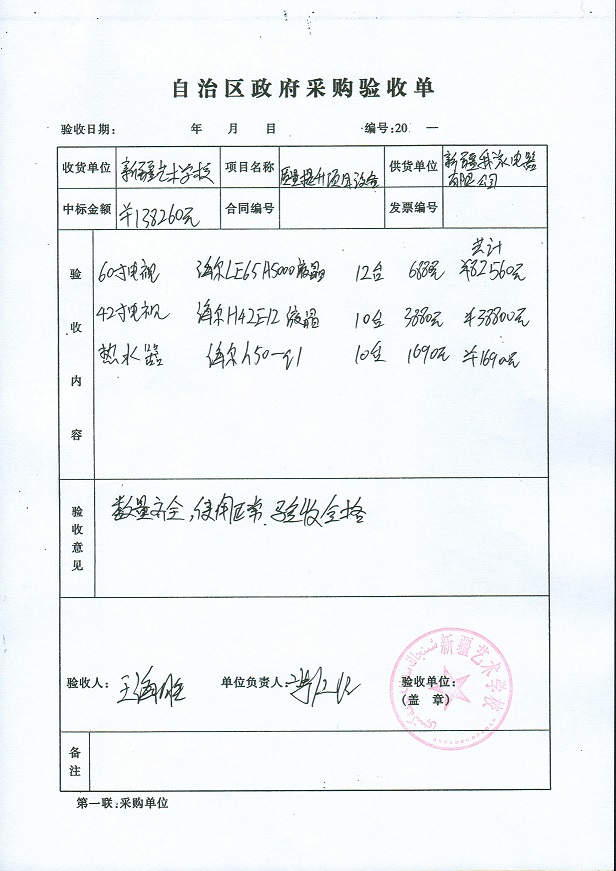 自治区政府采购验收单
验收日期： 年 月 日 编号:20 —
收货单位 新疆艺术学校 项目名称 质量提升项目设备 供货单位 新疆 家电器有限公司
中标金额 ¥138260元 合同编号 发票编号
验收内容
共计
60寸电视 海尔LE65A5000液晶 12台 6880元 ¥82560元
42寸电视 海尔H42E12液晶 10台 3880元 ¥38800元
热水器 海尔 10台 1690元 ¥1690元
验收意见
数量齐全，使用正常，验收合格
验收人： 王海 单位负责人： 验收单位：
(盖 章)
新疆艺术学校
备注
第一联:采购单位